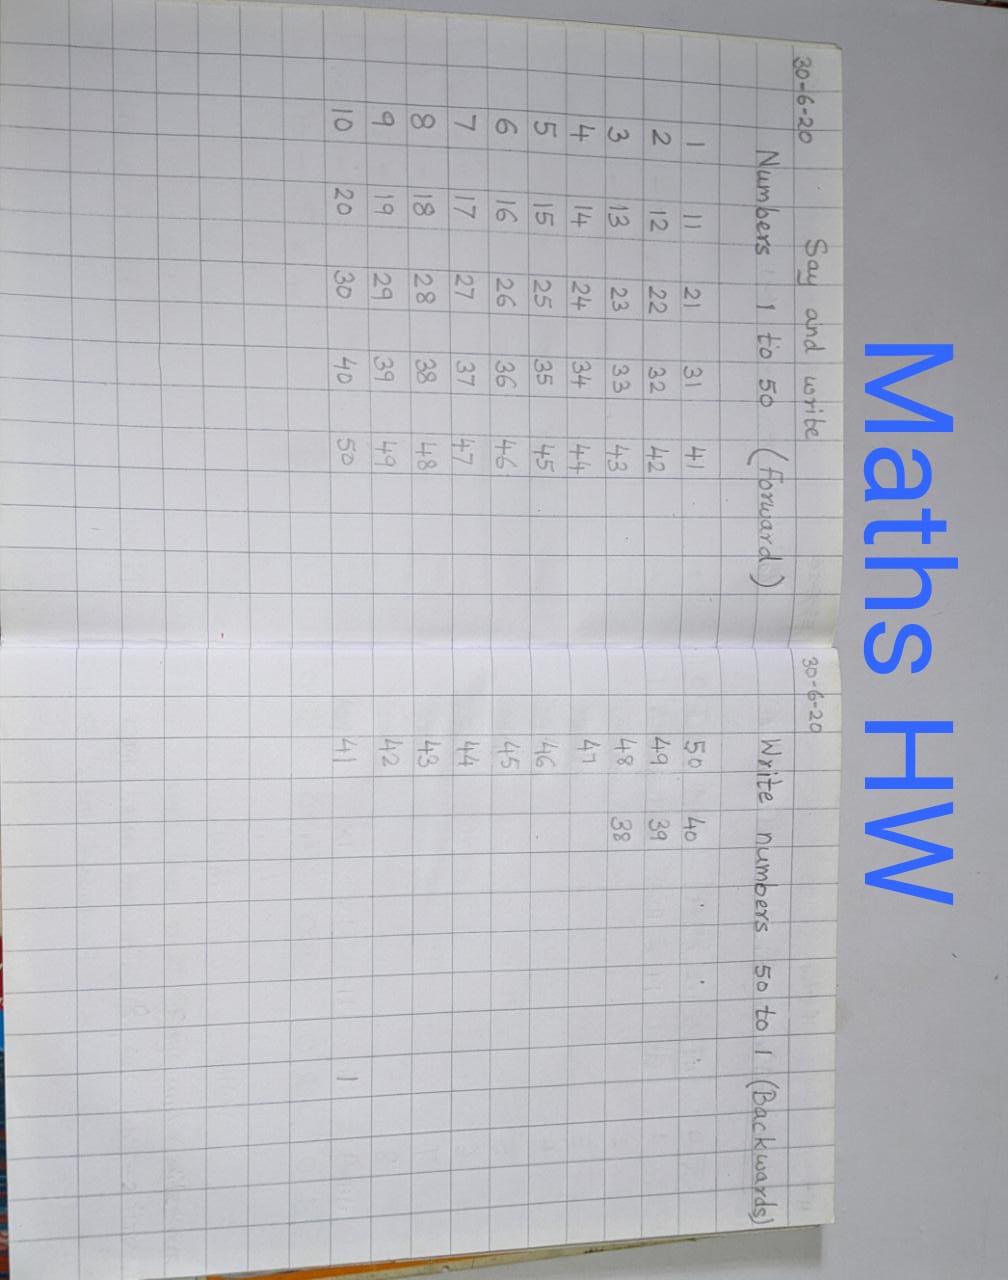 Maths HW
30-6-20
Say and write
Numbers 1 to 50 (forward)
1 11 21 31 41
2 12 22 32 42
3 13 23 33 43
4 14 24 34 44
5 15 25 35 45
6 16 26 36 46
7 17 27 37 47
8 18 28 38 48
9 19 29 39 49
10 20 30 40 50
30-6-20
Write numbers 50 to 1 (Backwards)
50 40 . . .
49 39
48 38
47
46
45
44
43
42
41 1